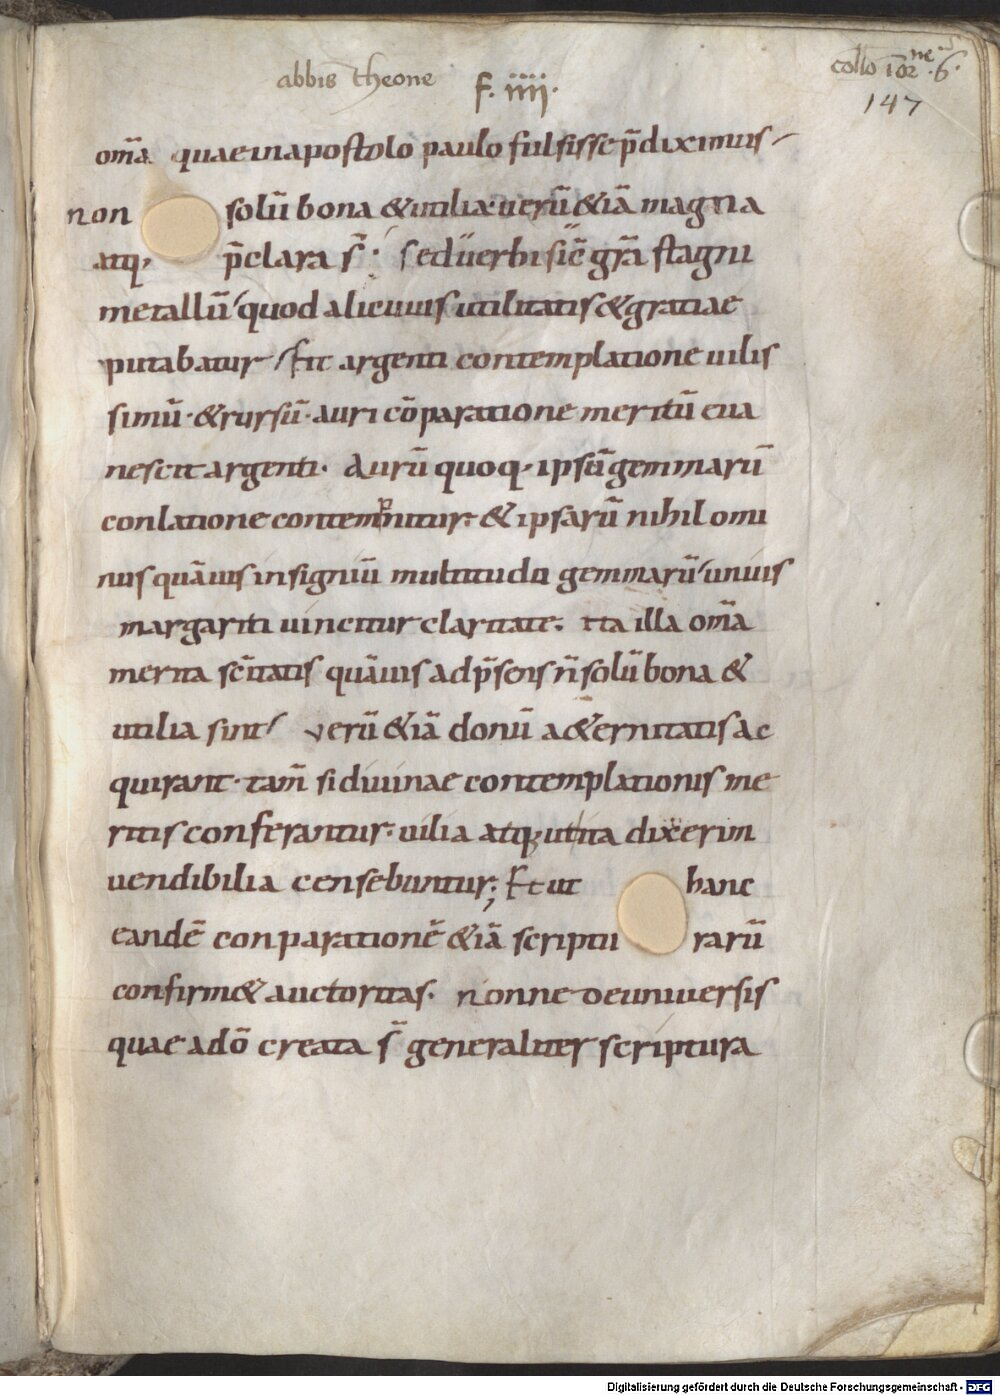 abbis theone
f. iiii.
collo ior ne 6.
147
om̄a quae in apostolo paulo fulsisse p̄diximus
non solū bona & utilia uerū &iā magna
atq; p̄clara s̄t. sed ūerbi sic̄ gr̄a stagni
metallū quod alicuius utilitatis & gratiae
putabatur fit argenti contemplatione uilis
simū. & rursū. auri cōparatione meritū eua
nescit argenti. Aurū quoq. ipsā gemmarū
conlatione contempnitur. & ipsarū nihilomi
nus quāuis insigniū multitudo gemmarū unius
margariti uincitur claritate. ita illa om̄a
merita sc̄itatis quāuis ad p̄sens n̄ solū bona &
utilia sint uerū &iā donū a&ernitatis ac
quirant. tam̄ si diuinae contemplationis me
ritis conferantur. uilia atq; ut ita dixerim
uendibilia censebuntur; Et ut hanc
eandē conparationē &iā scriptu rarū
confirm& auctoritas. nonne de uniuersis
quae a dō creata s̄t generaliter scriptura
Digitalisierung gefördert durch die Deutsche Forschungsgemeinschaft - DFG